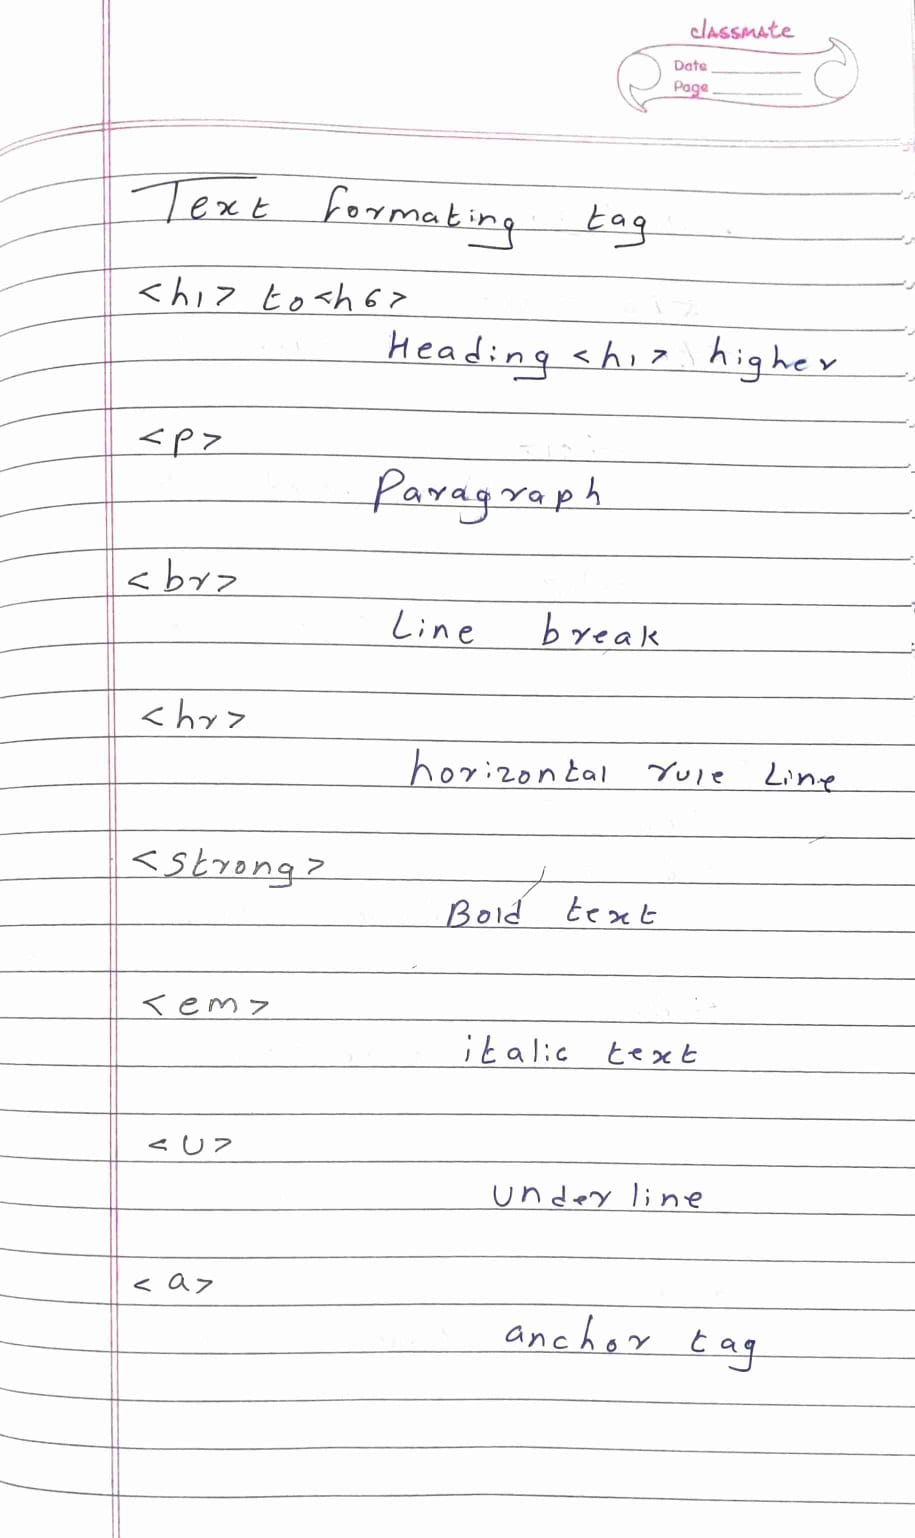 classmate
Date
Page
Text formating tag
<h1> to <h6>
Heading <h1> higher
<p>
Paragraph
<br>
Line break
<hr>
horizontal rule Line
<strong>
Bold text
<em>
italic text
<u>
underline
<a>
anchor tag